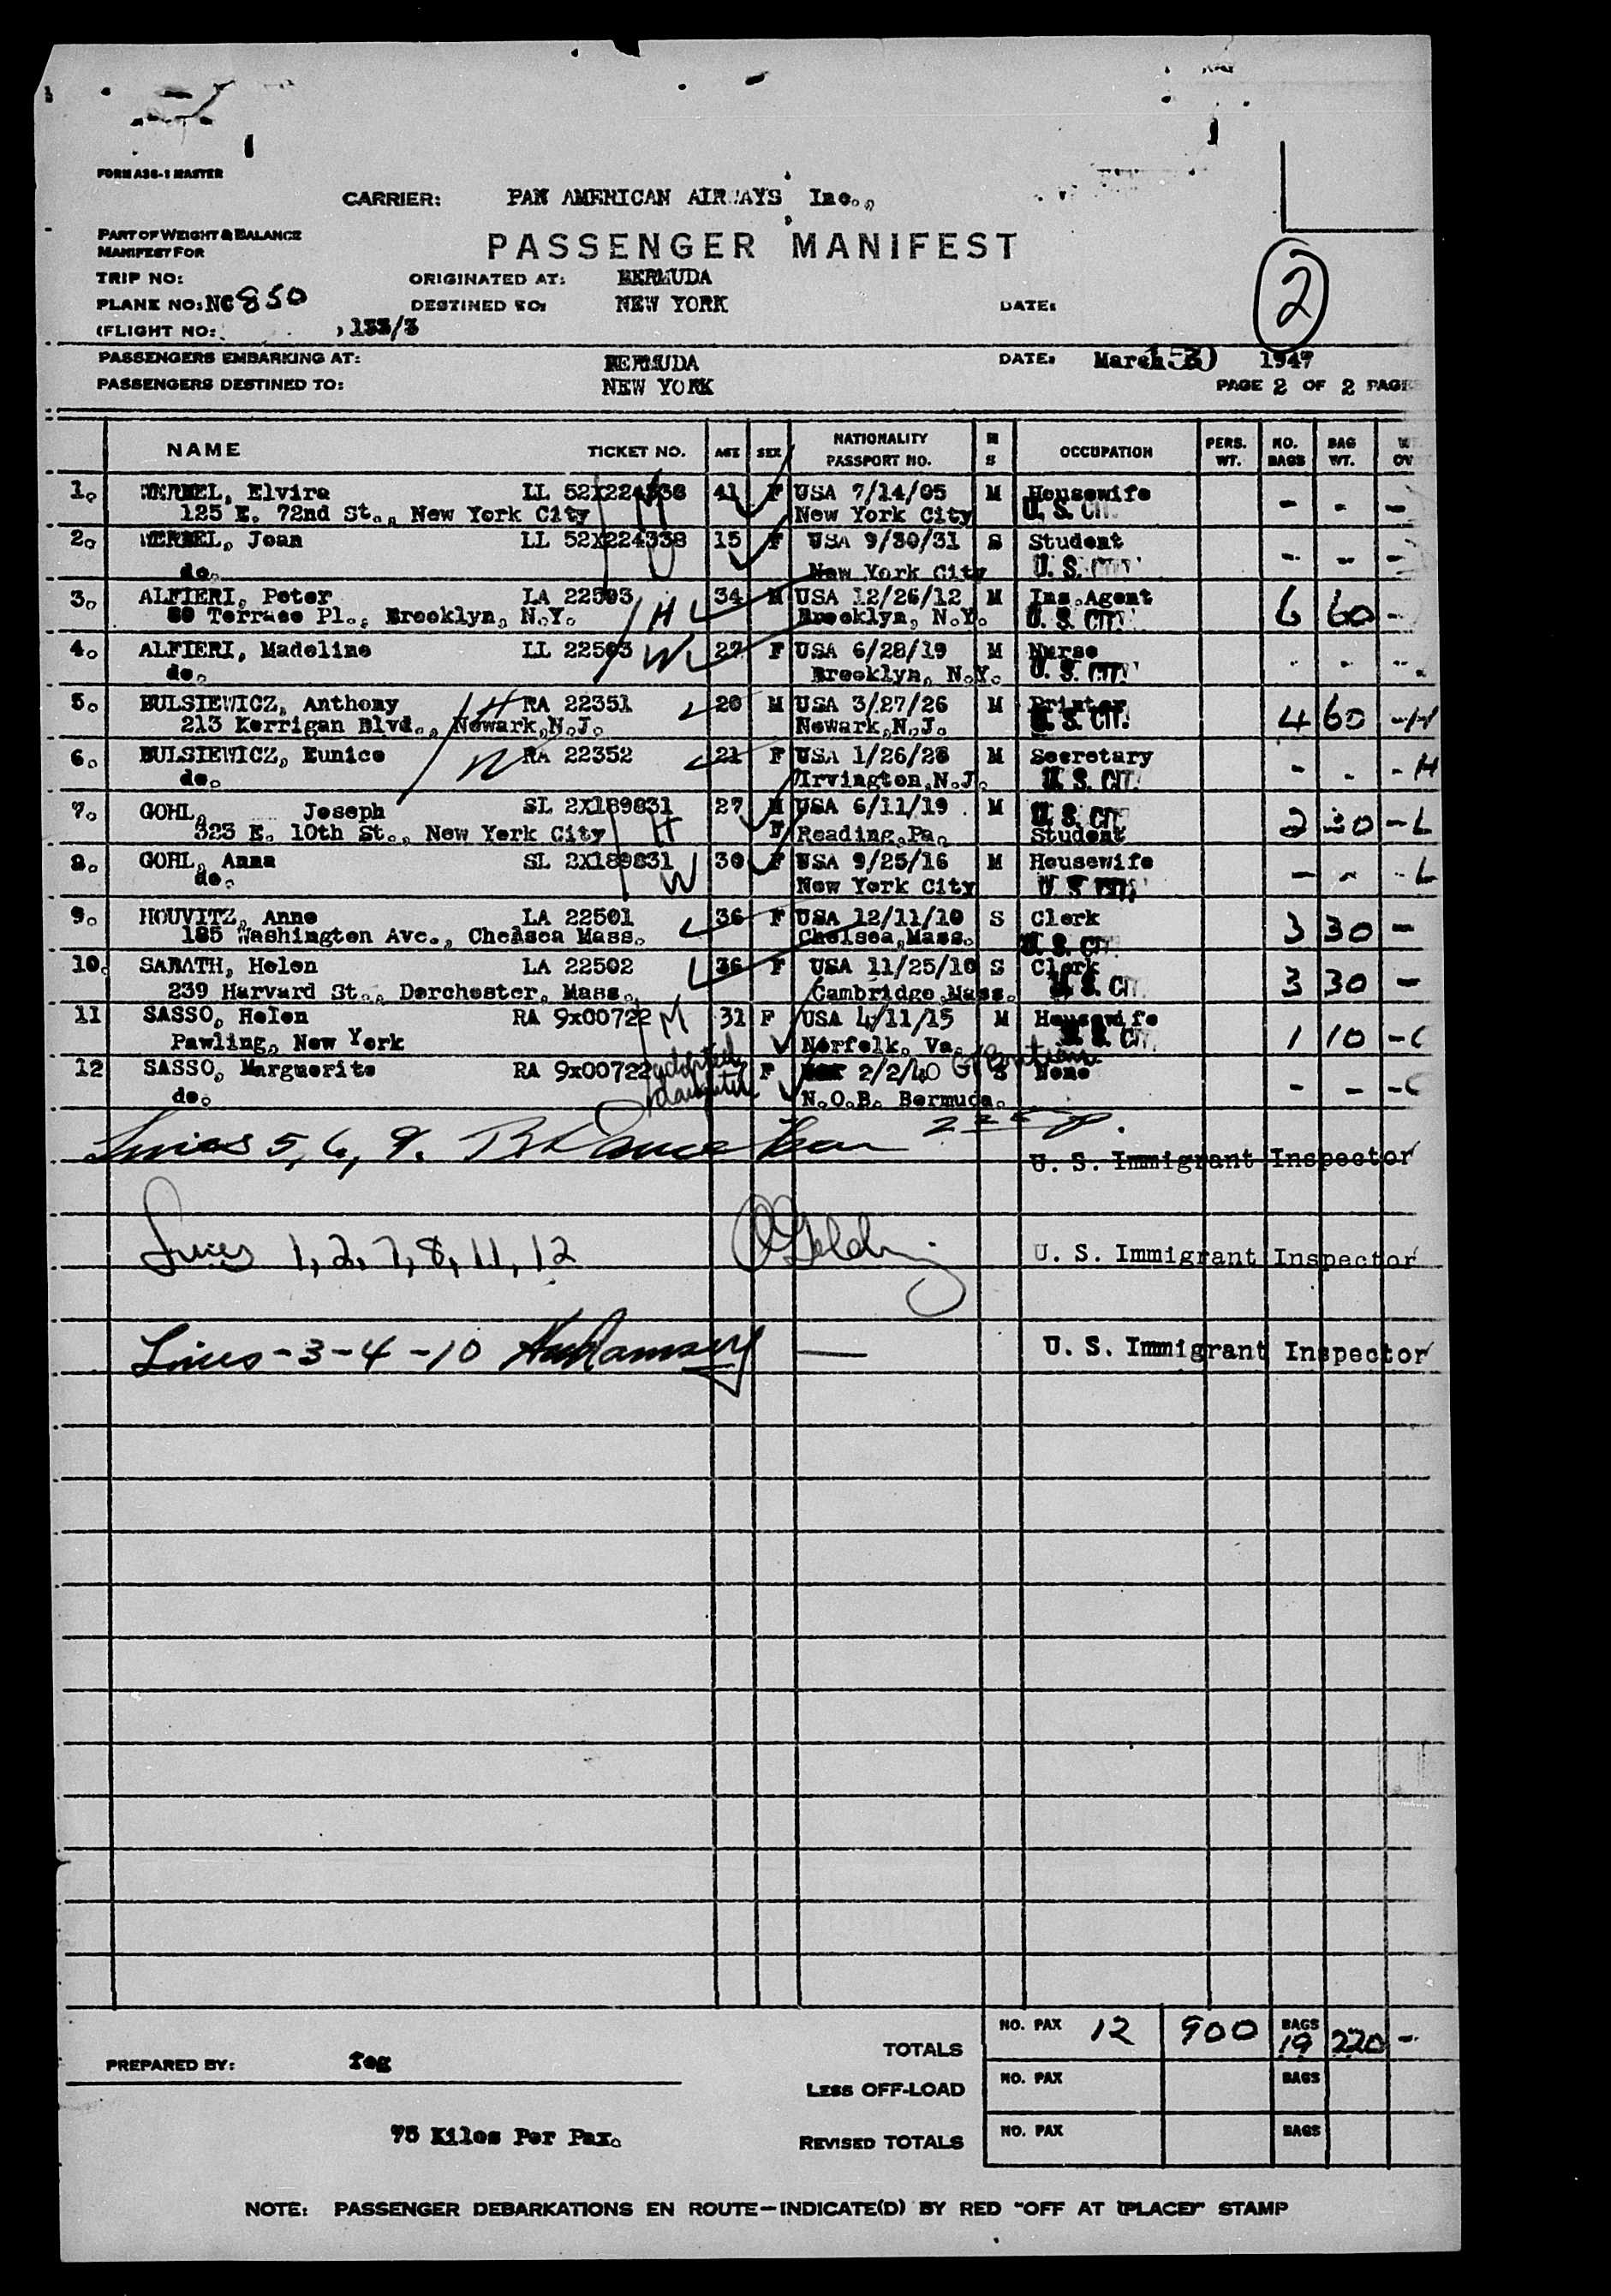 FORM A36-1 MASTER
CARRIER: PAN AMERICAN AIRWAYS Inc.,
PART OF WEIGHT & BALANCE
MANIFEST FOR
PASSENGER MANIFEST
TRIP NO: ORIGINATED AT: BERMUDA
PLANE NO: NC 850 DESTINED TO: NEW YORK DATE:
2
(FLIGHT NO: 133/3
PASSENGERS EMBARKING AT: BERMUDA DATE: March 30 1947
PASSENGERS DESTINED TO: NEW YORK PAGE 2 OF 2 PAGE
NAME TICKET NO. AGE SEX NATIONALITY PASSPORT NO. M S OCCUPATION PERS. WT. NO. BAGS BAG WT. W OV
1. WERBEL, Elvira LL 52X224338 41 F USA 7/14/05 M Housewife - - -
125 E. 72nd St., New York City New York City U. S. CIT.
2. WERBEL, Joan LL 52X224338 15 F USA 9/30/31 S Student - - -
do. New York City U. S. CIT.
3. ALFIERI, Peter LA 22503 H 34 M USA 12/26/12 M Ins.Agent 6 60 -
80 Terrace Pl., Brooklyn, N.Y. Brooklyn, N.Y. U. S. CIT.
4. ALFIERI, Madeline LL 22503 W 27 F USA 6/28/19 M Nurse - - -
do. Brooklyn, N.Y. U. S. CIT.
5. BULSIEWICZ, Anthony H RA 22351 20 M USA 3/27/26 M Printer 4 60 -H
213 Kerrigan Blvd., Newark,N.J. Newark,N.J. U. S. CIT.
6. BULSIEWICZ, Eunice W RA 22352 21 F USA 1/26/26 M Secretary - - -H
do. Irvington,N.J. U. S. CIT.
7. GOHL, Joseph SL 2X189831 H 27 M USA 6/11/19 M U. S. CIT 2 30 -L
323 E. 10th St., New York City F Reading,Pa. Student
8. GOHL, Anna SL 2X189831 W 30 F USA 9/25/16 M Housewife - - -L
do. New York City U. S. CIT.
9. HOUVITZ, Anne LA 22501 36 F USA 12/11/10 S Clerk 3 30 -
185 Washington Ave., Chelsea Mass. Chelsea,Mass. U. S. CIT.
10. SABATH, Helen LA 22502 36 F USA 11/25/10 S Clerk 3 30 -
239 Harvard St., Dorchester, Mass. Cambridge,Mass. U. S. CIT.
11 SASSO, Helen RA 9x00722 M 31 F USA 4/11/15 M Housewife 1 10 -C
Pawling, New York Norfolk, Va. U. S. CIT.
12 SASSO, Marguerite RA 9x00722 adopted daughter F 2/2/40 S None - - -C
do. N.O.B. Bermuda.
Lines 5, 6, 9. U. S. Immigrant Inspector
Lines 1, 2, 7, 8, 11, 12 U. S. Immigrant Inspector
Lines - 3 - 4 - 10 U. S. Immigrant Inspector
TOTALS NO. PAX 12 900 BAGS 19 220 -
PREPARED BY: feg
LESS OFF-LOAD NO. PAX BAGS
75 Kilos Per Pax.
REVISED TOTALS NO. PAX BAGS
NOTE: PASSENGER DEBARKATIONS EN ROUTE—INDICATE(D) BY RED "OFF AT (PLACE)" STAMP